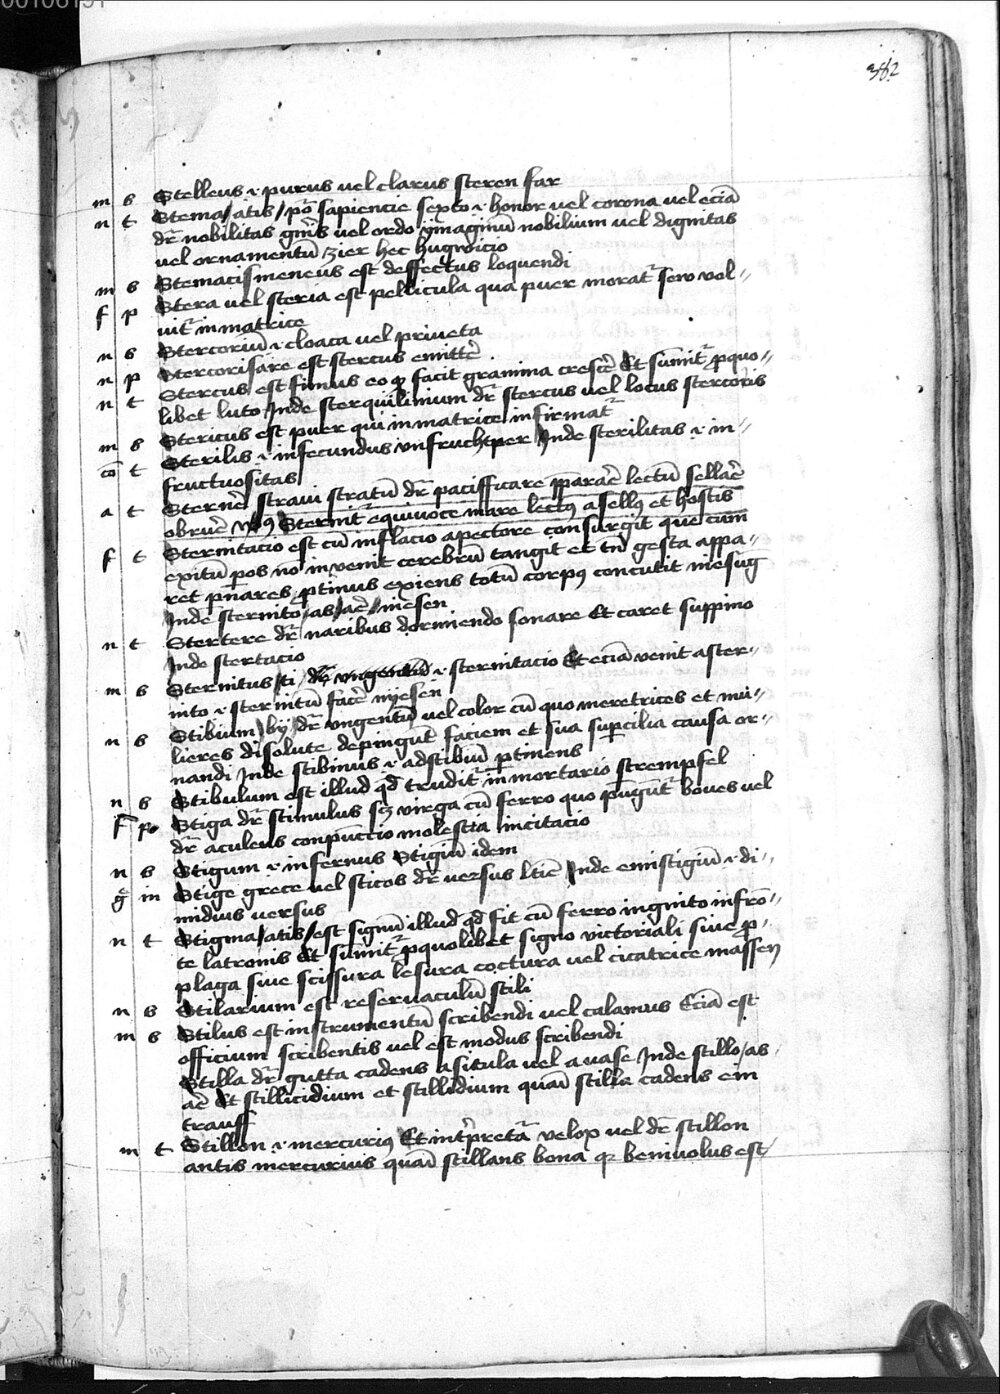 00106191
382
m s Stelleus .i. purus vel clarus steren far
n t Stema / atis / po sapiencie sexto .i. honor vel corona vel eciā
dr̄ nobilitas gn̄is vel ordo ymaginū nobilium vel dignitas
vel ornamentū zier hec hugwicio
m s Stemacismeneus est deffectus loquendi
f p Stera vel steria est pellicula qua puer morat̄ seu vol⸗
uit̄ in matrice
n s Stercoriū .i. cloaca vel priueta
n p Stercorisare est stercus emittē
n t Stercus est fimus eo qꝫ facit gramina crescē Et sumit̄ ꝓ quo⸗
libet luto Inde sterquilinium dr̄ stercus vel locus stercoris
m s Stericus est puer qui in matrice infirmat̄
cō t Sterilis .i. infecundus vnfruchtper Inde sterilitas .i. in⸗
fructuositas
a t Sternē straui stratū dr̄ pacifficare p̄parare lectū sellarē
obruē Sternit equiuoce mare lectus asellus et hostis
f t Sternitacio est cū inflacio a pectore consurgit que cum
exitū pos no inuenit cerebrū tangit et tn̄ gesta appa⸗
ret p nares ꝓtinus exiens totū corpus concutit niesung
Inde sternito / as / are / niesen
n t Stertere dr̄ naribus dormiendo sonare Et caret suppino
Inde stertacio
m s Sternitus / ti .i. sternitacio Et eciā venit a ster⸗
nito .i. sternitū facē nyesen
n s Stibium / bij / dr̄ vngentū vel color cū quo meretrices et mu⸗
lieres disolute depingūt faciem et sua suꝑcilia causa or⸗
nandi Inde stibinus .i. ad stibiū ꝑtinens
n s Stibulum est illud qd trudit̄ in mortario strempfel
f p Stiga dr̄ stimulus sꝫ virga cū ferro quo pungūt boues vel
dr̄ aculeus conpunccio molestia incitacio
n s Stigum .i. infernus Stigiū idem
g in Stige grece vel sticos dr̄ versus ltīe Inde emistigiū .i. di⸗
midius versus
n t Stigma / atis / est signū illud qd fit cū ferro ingnito in fro⸗
te latronis Et sumit̄ ꝓ quolibet signo victoriali siue ꝓ
plaga siue scissura lesura coctura vel cicatrice massen
n s Stilarium est reseruaculū stili
m s Stilus est instrumentū scribendi vel calamus Eciā est
officium scribentis vel est modus scribendi
Stilla dr̄ gutta cadens a situla vel a vase Inde stillo / as
arē Et stillicidium et stillodium quasi stilla cadens ein
trauff
m t Stillon .i. mercurius Et intp̄retā velox vel dr̄ stillon
antis mercurius quasi stillans bona qꝫ beniuolus est